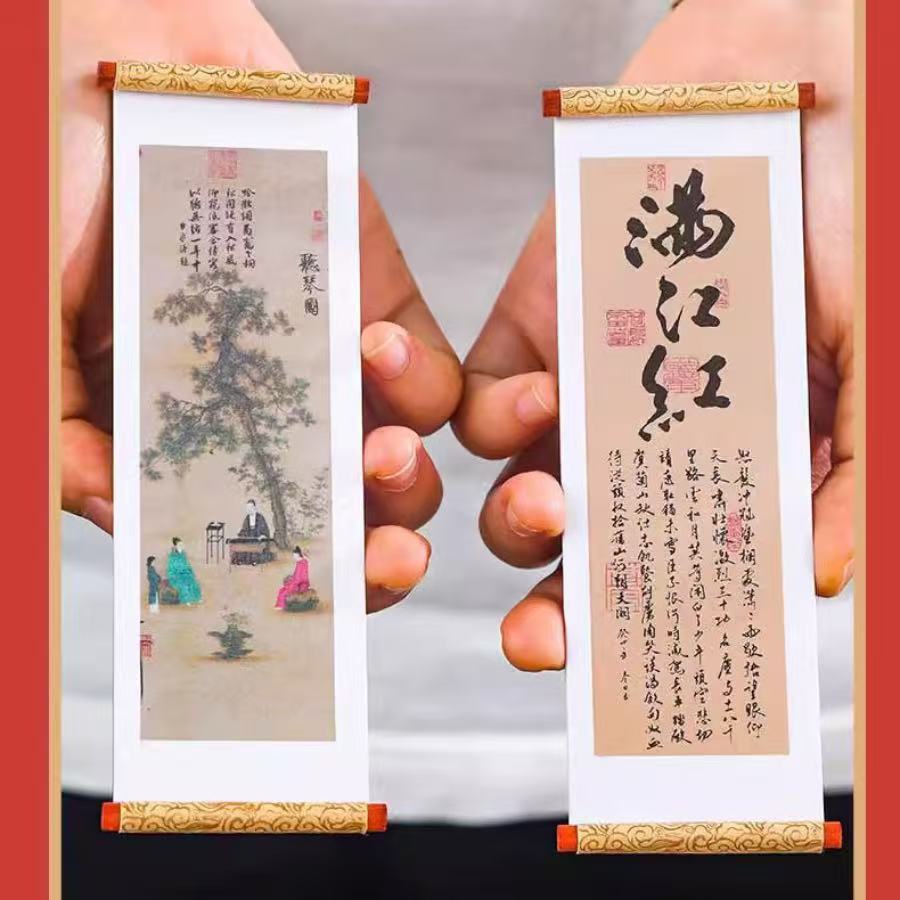 聽琴圖
吟徵調商竈下桐
松間疑有入松風
仰窺低審含情客
似聽無絃一弄中
滿
江
紅
怒髮沖冠憑欄處瀟瀟雨歇抬望眼仰
天長嘯壯懷激烈三十功名塵与土八千
里路雲和月莫等閑白了少年頭空悲切
靖康耻猶未雪臣子恨何時滅駕長車踏破
賀蘭山缺壯志飢餐胡虜肉笑談渴飲匈奴血
待從頭收拾舊山河朝天闕